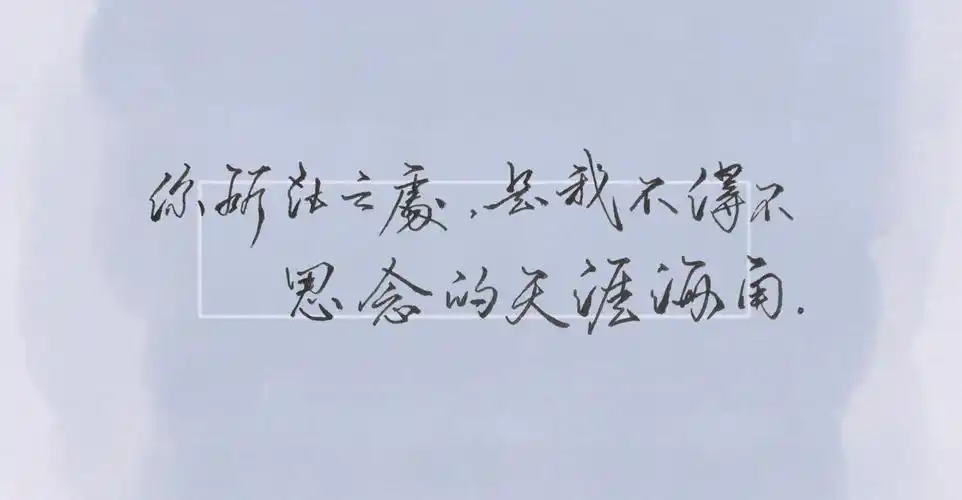 你所在之處,是我不得不
思念的天涯海角.